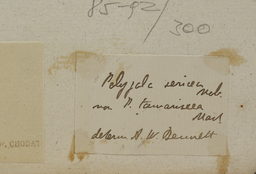 85-92/
300
Polygala sericea
non P. tamariscea
Mart
determ A. W. Bennett
. CHODAT